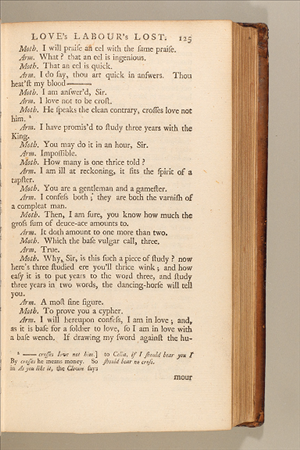 LOVE's LABOUR's LOST. 125
Moth. I will praiſe an eel with the ſame praiſe.
Arm. What? that an eel is ingenious.
Moth. That an eel is quick.
Arm. I do ſay, thou art quick in anſwers. Thou
heat'ſt my blood——
Moth. I am anſwer'd, Sir.
Arm. I love not to be croſt.
Moth. He ſpeaks the clean contrary, croſſes love not
him. ⁸
Arm. I have promis'd to ſtudy three years with the
King.
Moth. You may do it in an hour, Sir.
Arm. Impoſſible.
Moth. How many is one thrice told?
Arm. I am ill at reckoning, it fits the ſpirit of a
tapſter.
Moth. You are a gentleman and a gameſter.
Arm. I confeſs both; they are both the varniſh of
a compleat man.
Moth. Then, I am ſure, you know how much the
groſs ſum of deuce-ace amounts to.
Arm. It doth amount to one more than two.
Moth. Which the baſe vulgar call, three.
Arm. True.
Moth. Why, Sir, is this ſuch a piece of ſtudy? now
here's three ſtudied ere you'll thrice wink; and how
eaſy it is to put years to the word three, and ſtudy
three years in two words, the dancing-horſe will tell
you.
Arm. A moſt fine figure.
Moth. To prove you a cypher.
Arm. I will hereupon confeſs, I am in love; and,
as it is baſe for a ſoldier to love, ſo I am in love with
a baſe wench. If drawing my ſword againſt the hu-
⁸ —— croſſes love not him.]
By croſſes he means money. So
in As you like it, the Clown ſays
to Celia, if I ſhould bear you I
ſhould bear no croſs.
mour